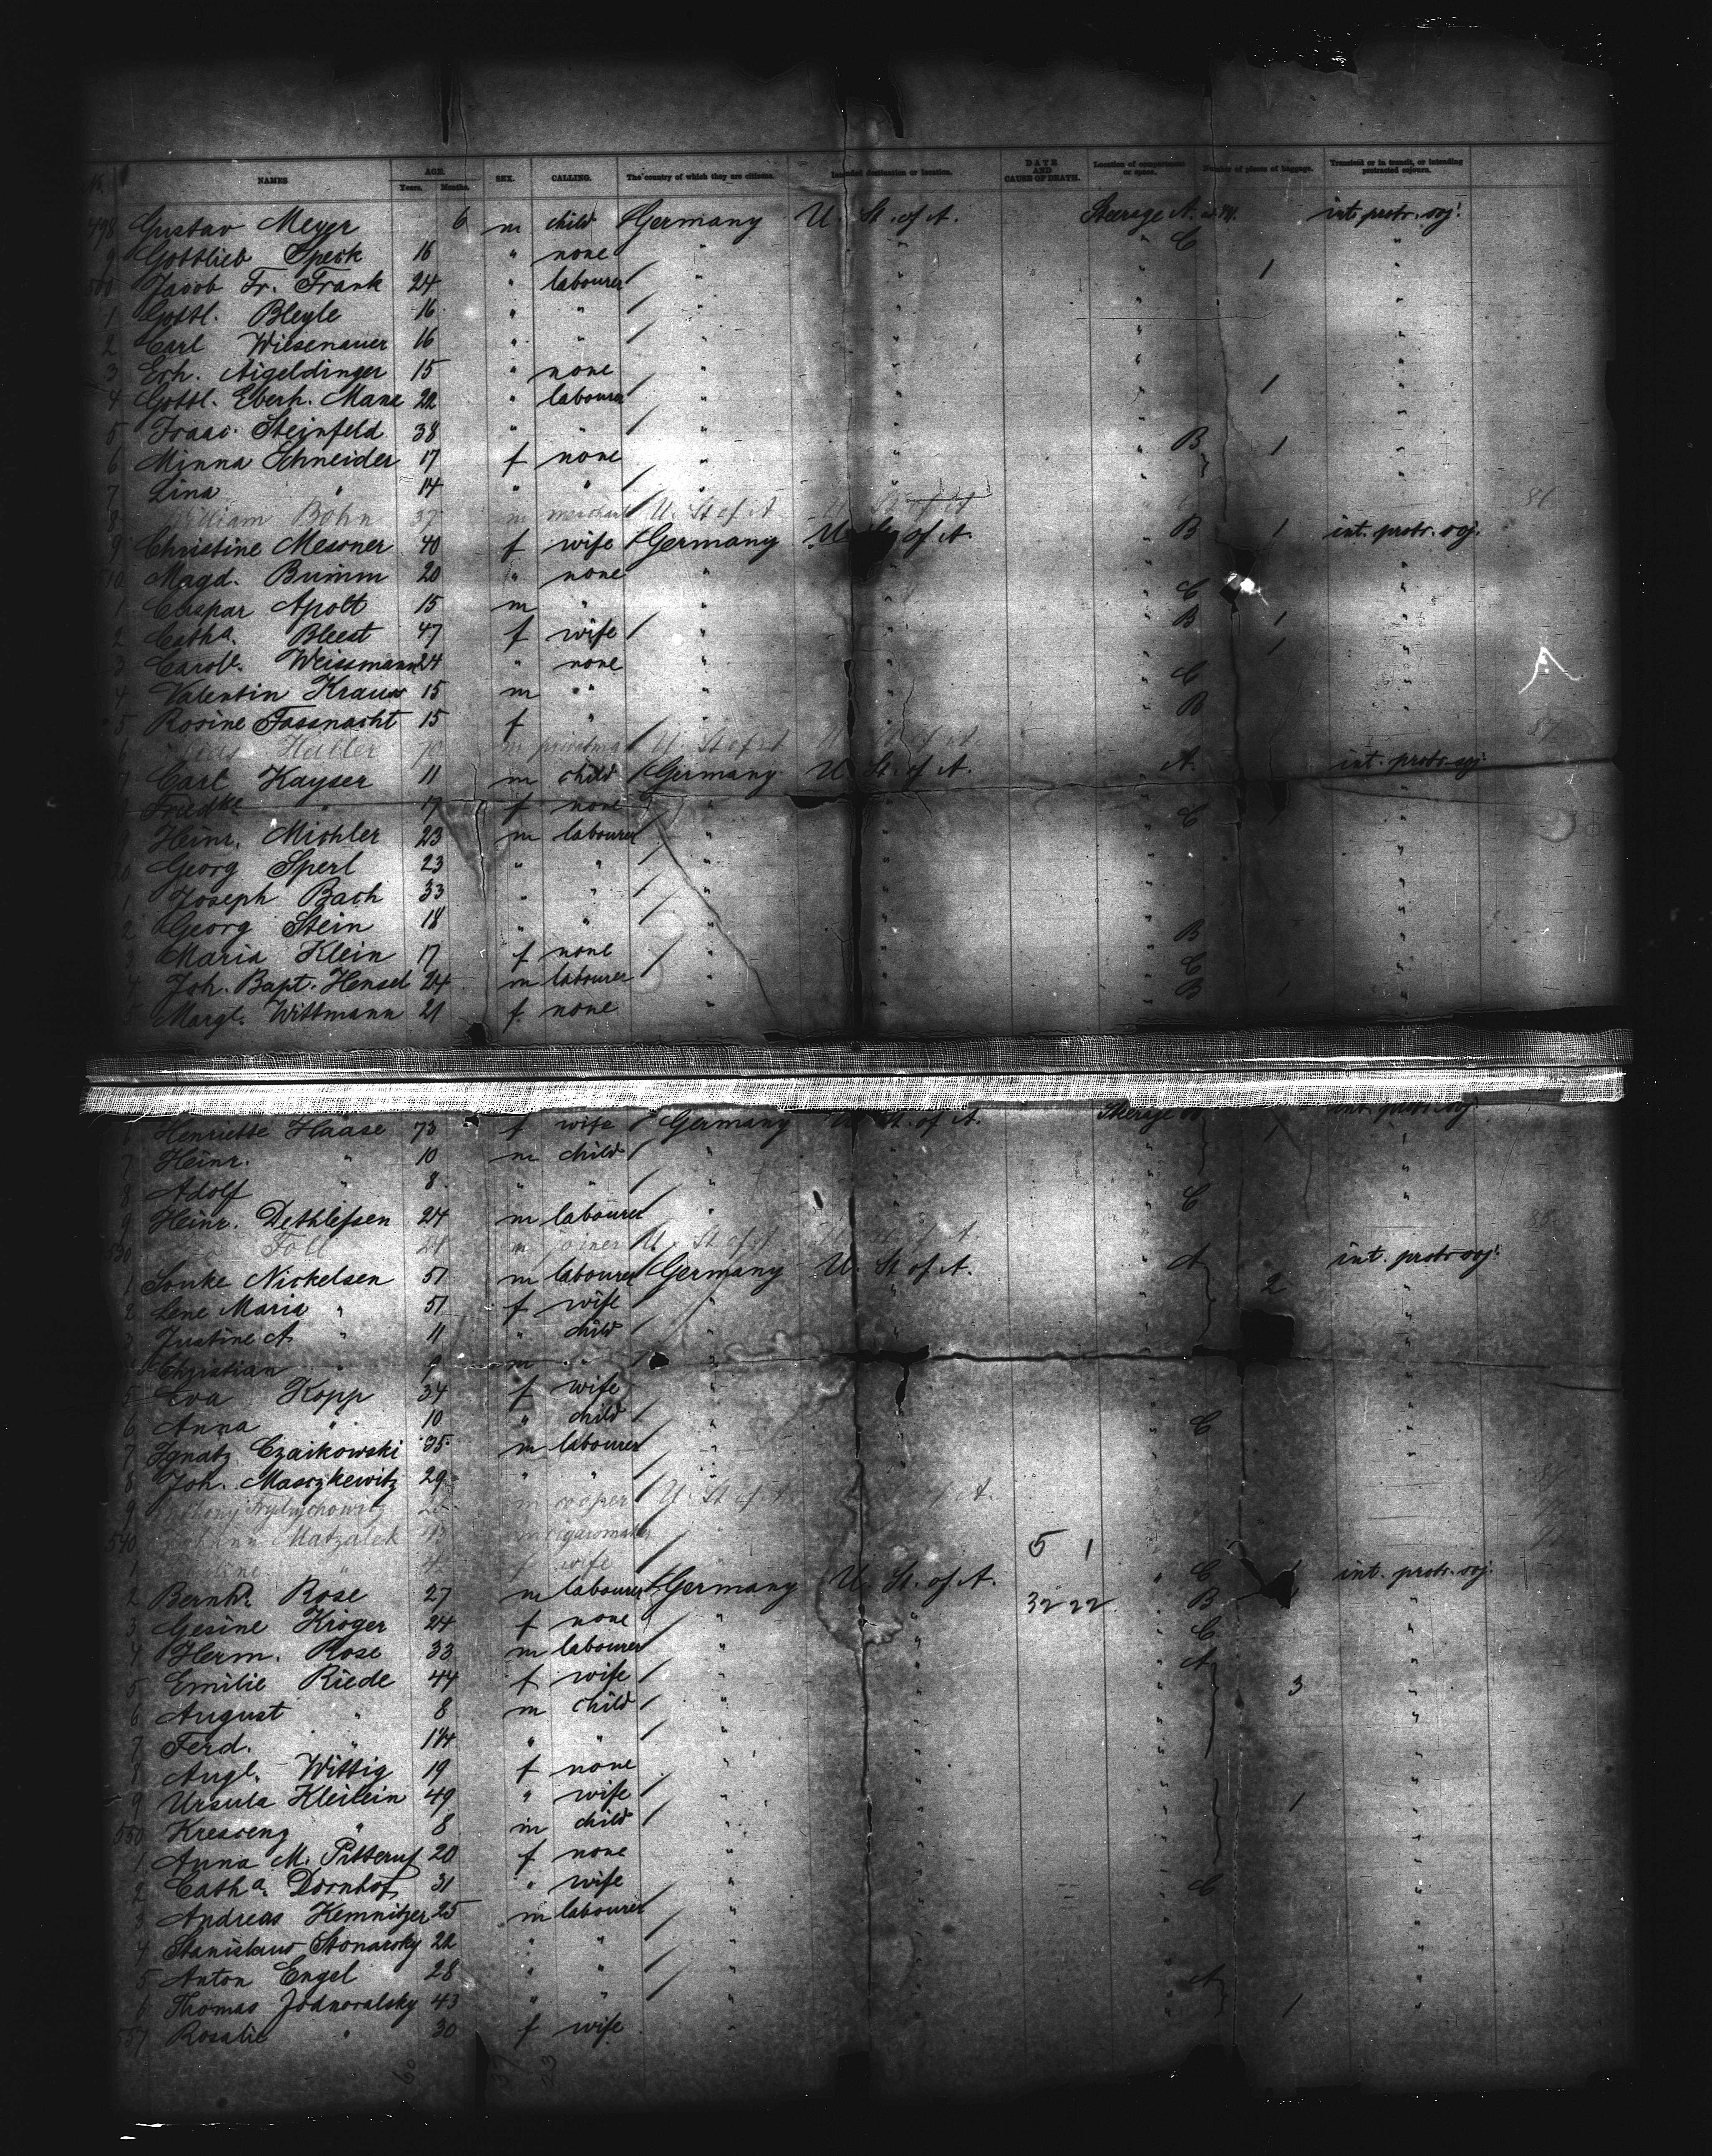 NAMES AGE. Years. Months. SEX. CALLING. The country of which they are citizens. Intended destination or location. DATE AND CAUSE OF DEATH. Location of compartment or space. Number of pieces of baggage. Transient or in transit, or intending protracted sojourn.
498 Gustav Meyer 6 m child Germany U. St. of A. Steerage A. int. protr. soj.
9 Gottlieb Speck 16 " none " " " C "
500 Jacob Fr. Frank 24 " labourer " " " 1 "
1 Gottl. Bleyle 16 " " " " " "
2 Carl Wiesenauer 16 " " " " " "
3 Erh. Aigeldinger 15 " none " " " "
4 Gottl. Eberh. Manz 22 " labourer " " " 1 "
5 Isaac Steinfeld 38 " " " " " "
6 Minna Schneider 17 f none " " " B 1 "
7 Lina " 14 " " " " " "
8 William Bohn 37 m merchant U. St of A U. St of A 86
9 Christine Messner 40 f wife Germany U. St. of A. " B 1 int. protr. soj.
10 Magd. Bumm 20 " none " " " "
1 Caspar Apolt 15 m " " " " C "
2 Catha. Bleest 47 f wife " " " B 1 "
3 Carole. Weissmann 24 " none " " " 1 "
4 Valentin Kraus 15 m " " " " C "
5 Rosine Fassnacht 15 f " " " " B "
6 Hahler 70 m privatman U. St of A U. St of A. 87
7 Carl Kayser 11 m child Germany U. St. of A. " A. int. protr. soj.
8 Friedke " 17 f none " " " "
9 Heinr. Michler 23 m labourer " " " C "
20 Georg Sperl 23 " " " " " "
1 Joseph Bach 33 " " " " " "
2 Georg Stein 18 " " " " " "
3 Maria Klein 17 f none " " " B "
4 Joh. Bapt. Hensel 24 m labourer " " " C "
5 Margt. Wittmann 21 f none " " " B 1 "
6 Henriette Haase 73 f wife Germany U. St. of A. Steerage B 1 int. protr. soj.
7 Heinr. " 10 m child " " " "
8 Adolf " 8 " " " " " "
9 Heinr. Dethlefsen 24 m labourer " " " C "
530 Foll 24 m joiner U. St of A U. St of A. 88
1 Sonke Nickelsen 51 m labourer Germany U. St of A. " A int. protr. soj.
2 Lene Maria " 51 f wife " " " 2 "
3 Justine A. " 11 " child " " " "
4 Christian " 9 m " " " " "
5 Eva Kopp 34 f wife " " " "
6 Anna " 10 " child " " " "
7 Ignatz Czaikowski 35 m labourer " " " C "
8 Joh. Masczkewitz 29 " " " " " "
9 Anthony 26 m cooper U. St of A of A.
540 Johann Matzalek 43 m cigarmaker " 5 1
1 " f wife
2 Bernh. Rose 27 m labourer Germany U. St. of A. " C 1 int. protr. soj.
3 Gesine Kröger 24 f none " " 32 22 " B "
4 Herm. Rose 33 m labourer " " " C "
5 Emilie Riede 44 f wife " " " A "
6 August " 8 m child " " " 3 "
7 Ferd. " 1¼ " " " " " "
8 Augt. Wittig 19 f none " " " "
9 Ursula Kleilein 49 " wife " " " "
550 Krescenz " 8 m child " " " 1 "
1 Anna M. Pitteruf 20 f none " " " "
2 Catha. Dornhof 31 " wife " " " "
3 Andreas Kemnitzer 25 m labourer " " " C "
4 Stanislaus Stonarsky 22 " " " " " "
5 Anton Engel 28 " " " " " "
6 Thomas Jodnoralsky 43 " " " " " A 1 "
557 Rosalie " 30 f wife " "
60 37 23